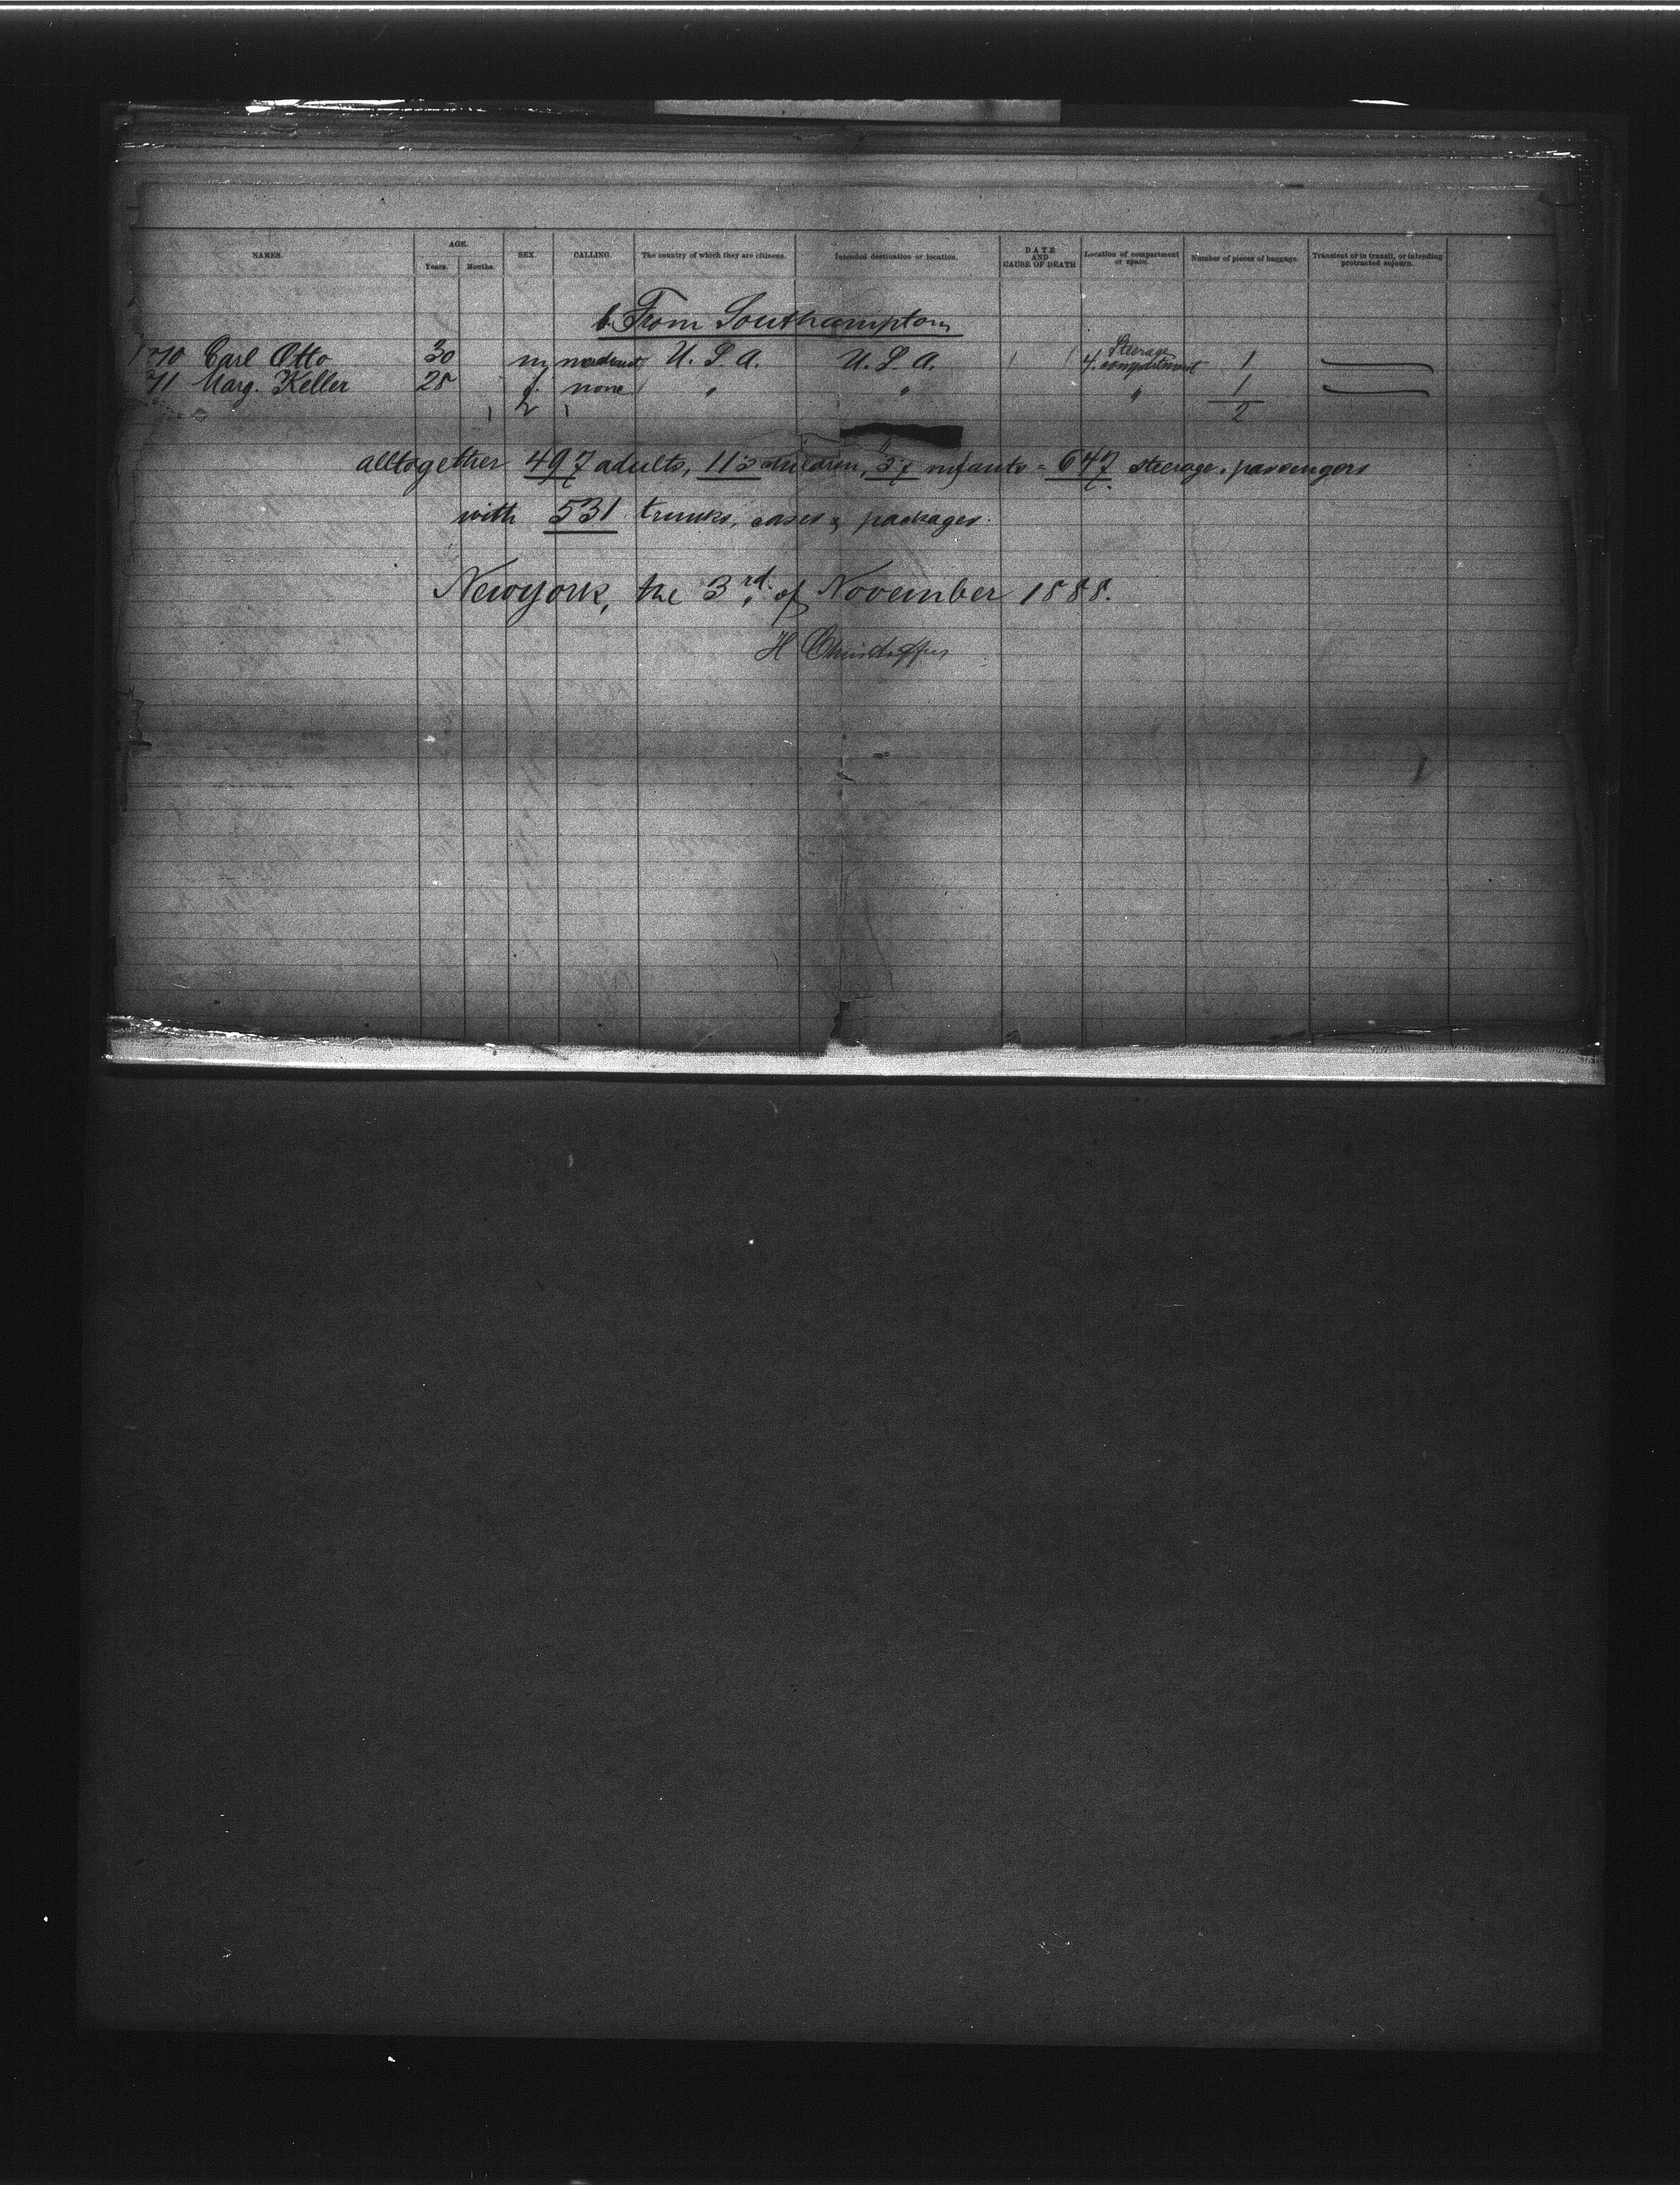 NAMES. AGE. Years. Months. SEX CALLING. The country of which they are citizens. Intended destination or location. DATE AND CAUSE OF DEATH Location of compartment or space. Number of pieces of baggage. Transient or in transit, or intending protracted sojourn.
b. From Southampton
Carl Otto 30 m U. S. A. U. S. A. Steerage 4. compartment 1
Marg. Keller 28 f. none " " " 1
2 2
alltogether 497 adults, 113 children, 37 infants = 647 steerage-passengers
with 531 trunks, cases & packages.
Newyork, the 3rd. of November 1888.
H Christoffers